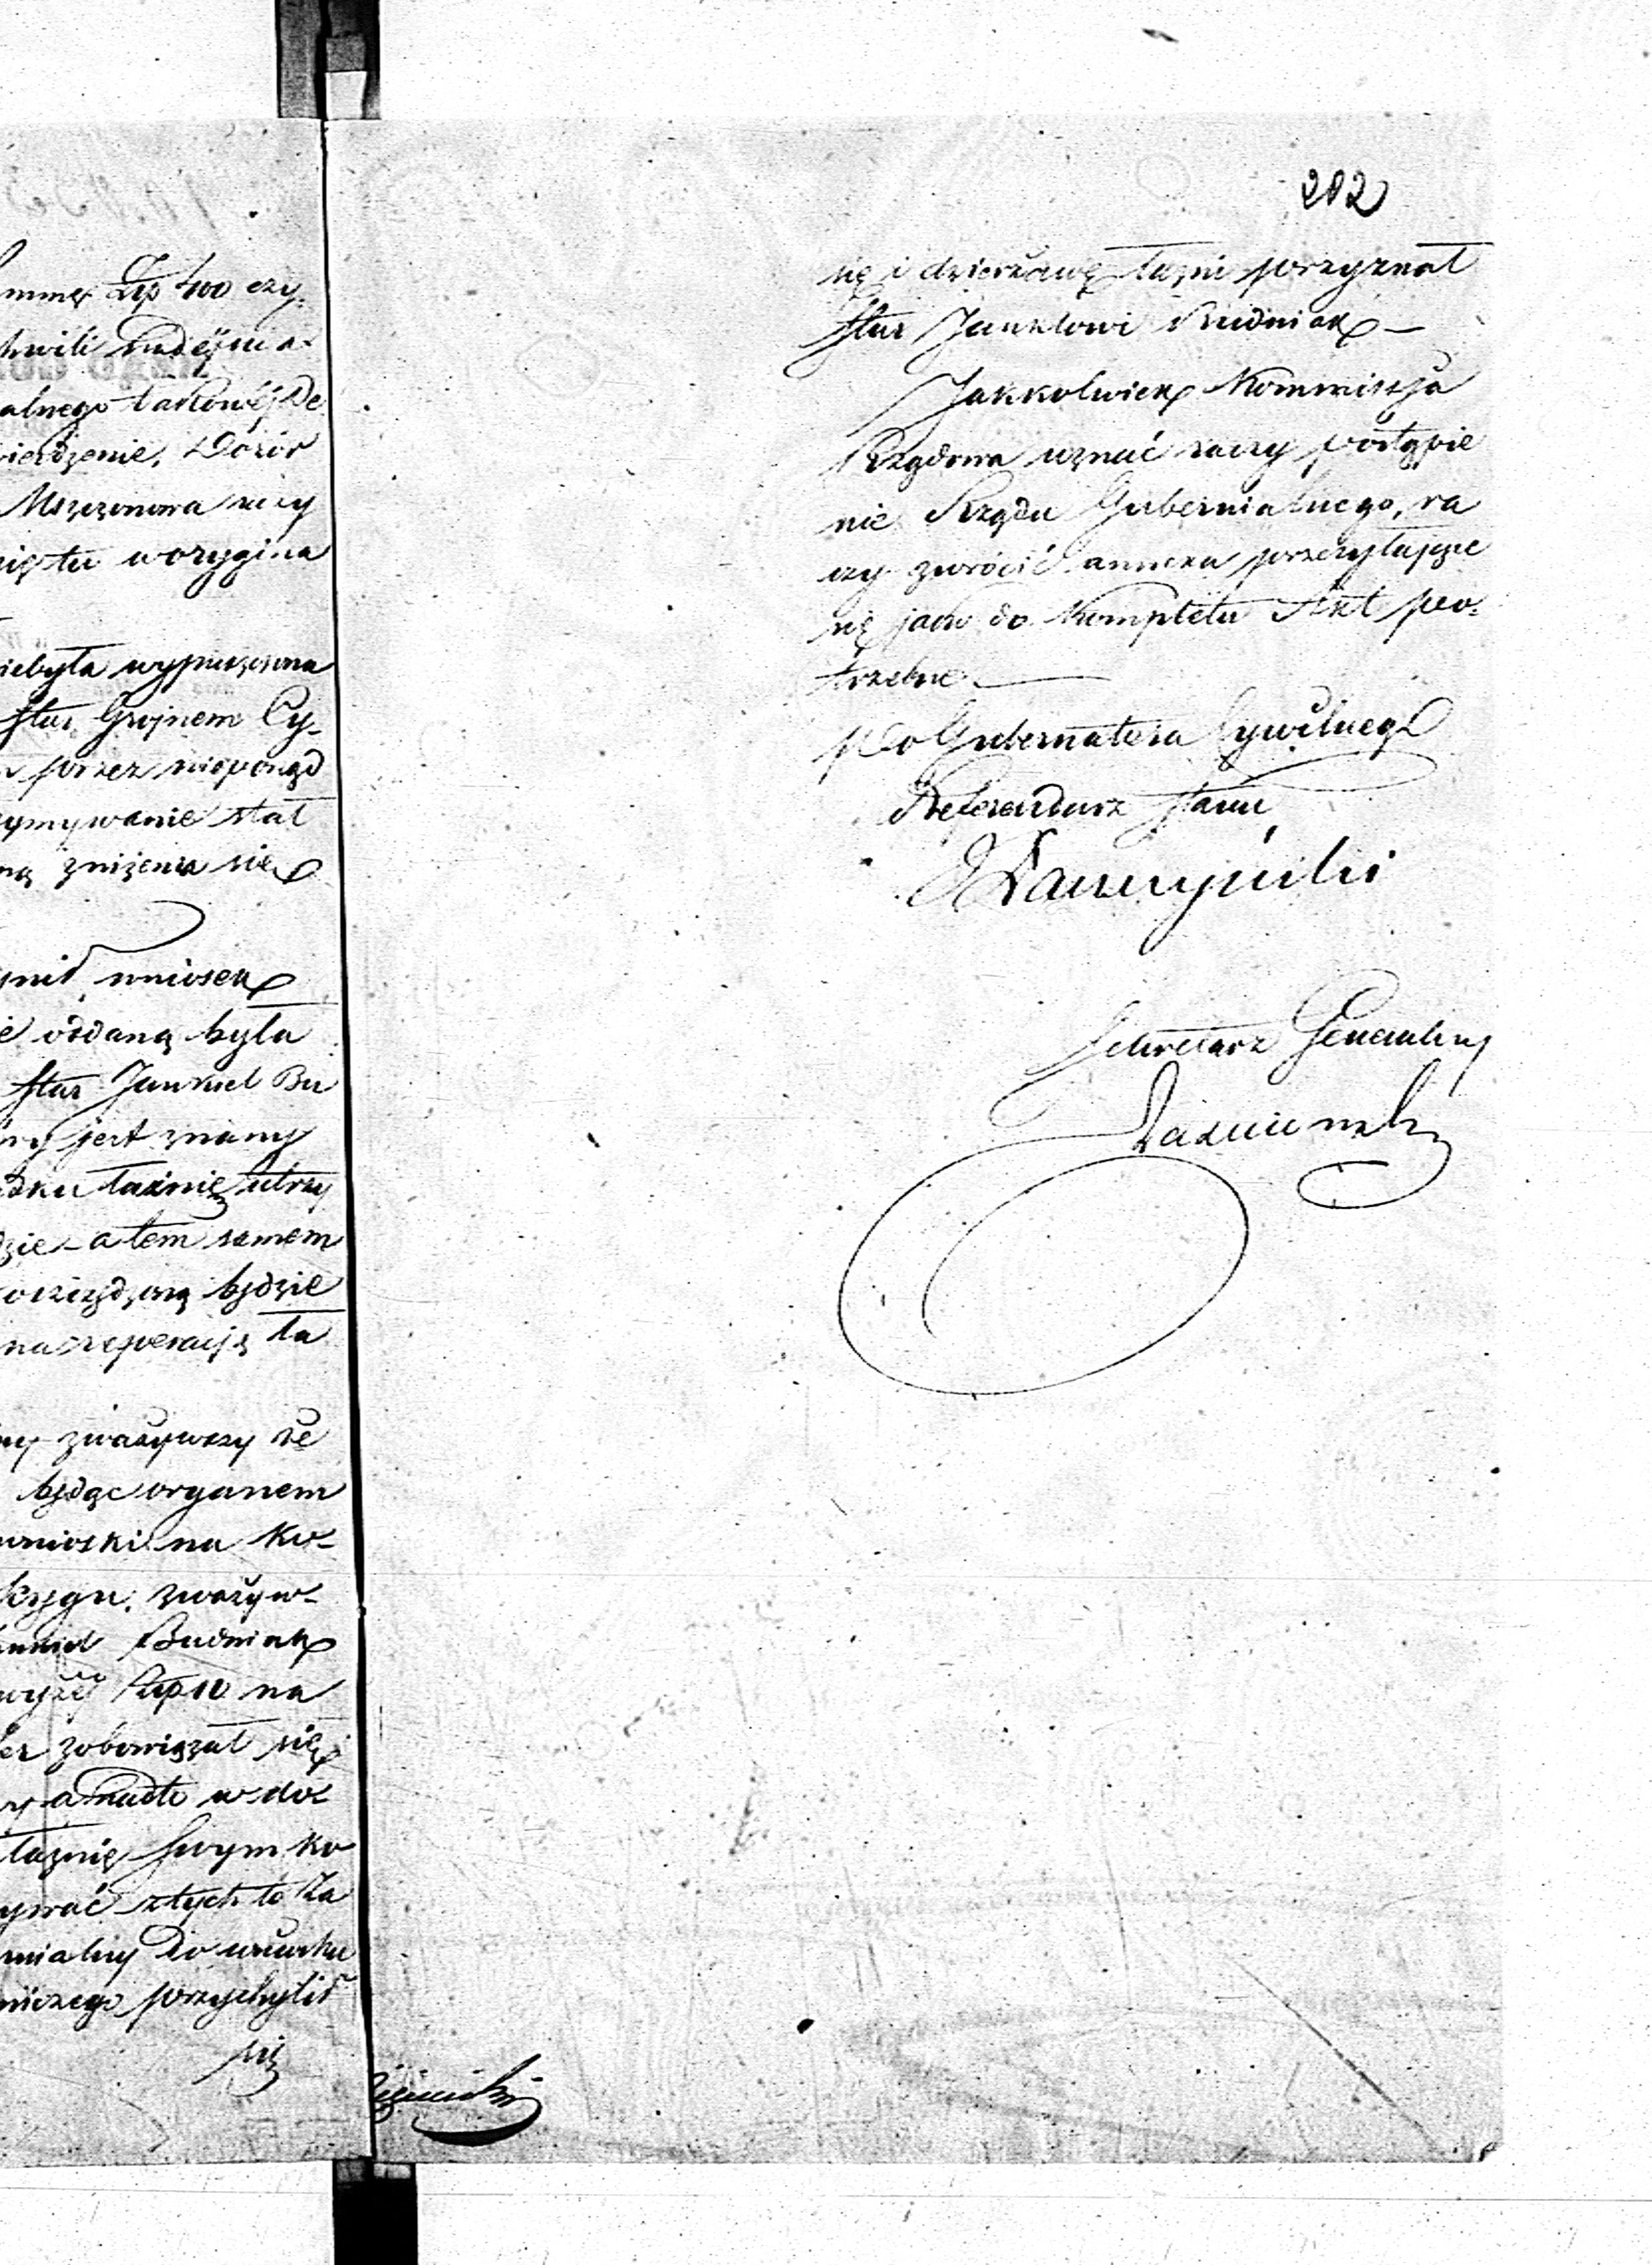 mmę Złp 400 czy,
hwili nadejścia
alnego takowéj De
wierdzenie, Dozór
Mszczonowa niży
piętu w orygina
niebyła wypuszczona
Star. Grojnem Cy-
przez nieporząd
zymywanie stał
ną zniżenia się
ynił wniosek
oddaną była
Star Jankiel Bu
óry jest znany
ądku łaźnię utrzy
dzie - a tem samem
oszczędzoną będzie
na reperacyę ła
ny zważywszy że
będąc organem
wnioski na ko-
zważyw-
Budniak
wyżéj na
zobowiązał się
a nadto w do-
łaźnię swym ko
ywać z tych to Za
rnialny do wniosku
niczego przychylił
się
202
się i dzierżawę łaźni przyznał
Star Janklowi Budniak —
Jakkolwiek Kommissja
Rządowa uznać raczy postąpie
nie Rządu Gubernialnego, ra
czy zwrócić annexa przesyłające
się jako do Kompletu Akt po-
trzebne —
p.o Gubernatora Cywilnego
Referendarz Stanu
Sekretarz Generalny